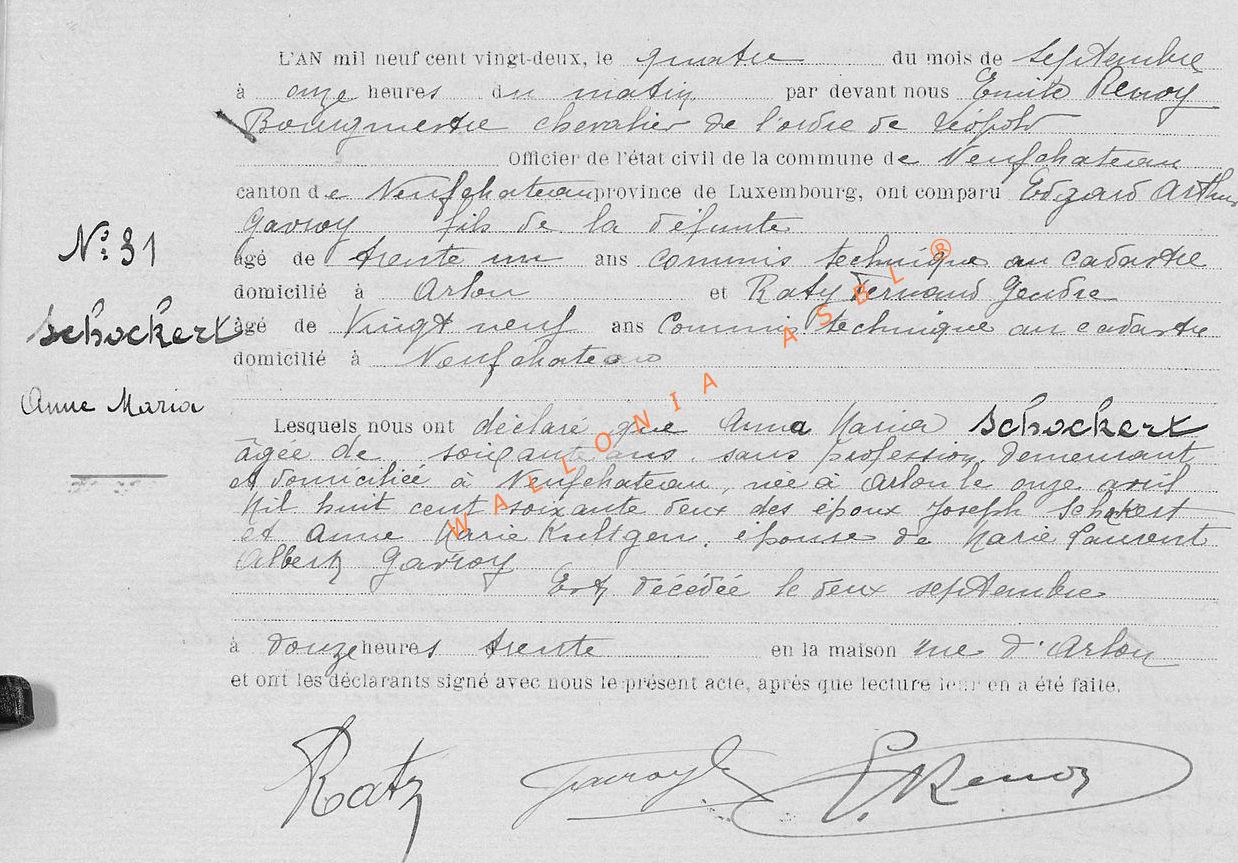 L'AN mil neuf cent vingt-deux, le quatre du mois de septembre
à onze heures du matin par devant nous Emile Renoy
Bourgmestre chevalier de l'ordre de Léopold
Officier de l'état civil de la commune de Neufchateau
canton de Neufchateau province de Luxembourg, ont comparu Edgard Arthur
Gavroy fils de la défunte
N° 31
âgé de trente un ans commis technique au cadastre
domicilié à Arlon et Raty Fernand Gendre
Schockert
âgé de Vingt neuf ans Commis technique au cadastre
domicilié à Neufchateau
Anne Maria
Lesquels nous ont déclaré que Anna Maria Schockert
âgée de soixante ans sans profession, demeurant
et domiciliée à Neufchateau, née à Arlon le onze avril
Mil huit cent soixante deux des époux Joseph Schokert
et Anne Marie Kultgen, épouse de Marie Laurent
Albert Gavroy
Est décédée le deux septembre
à douze heures trente en la maison rue d'Arlon
et ont les déclarants signé avec nous le présent acte, après que lecture leur en a été faite.
Raty Gavroy E. Renoy
WALLONIA ASBL ®